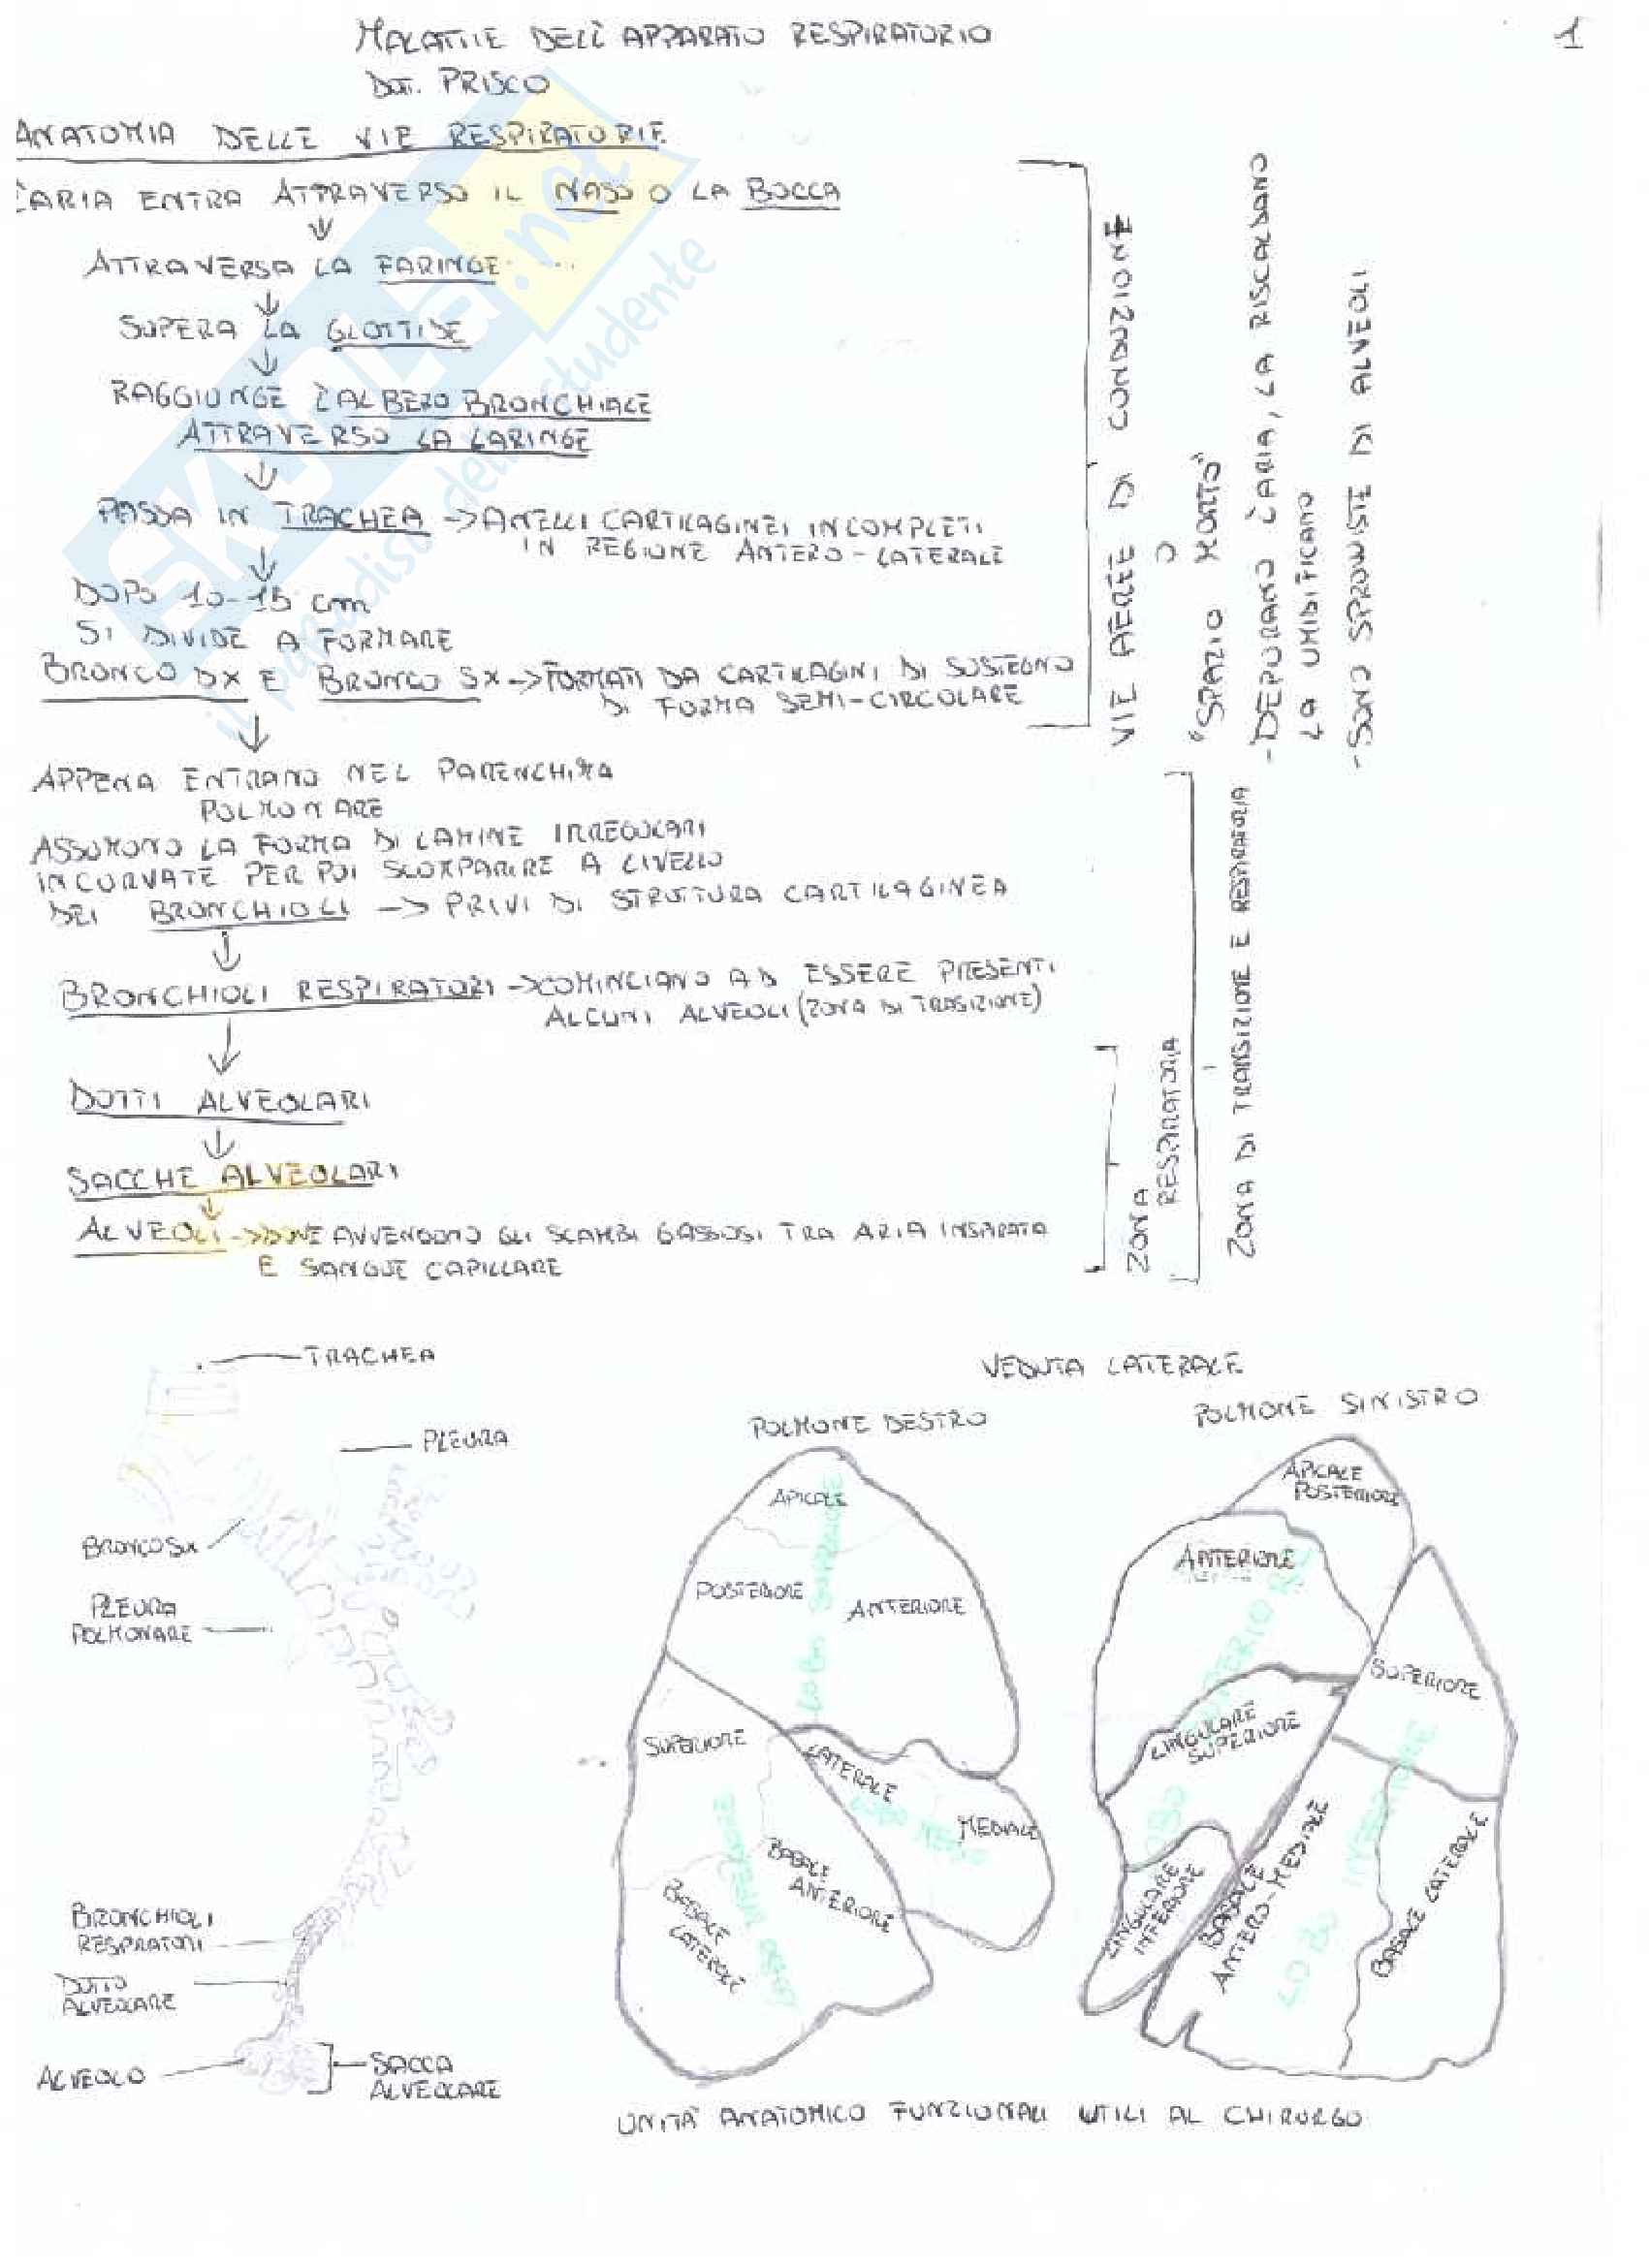 MALATTIE DELL'APPARATO RESPIRATORIO
1
DOTT. PRISCO
ANATOMIA DELLE VIE RESPIRATORIE
L'ARIA ENTRA ATTRAVERSO IL NASO O LA BOCCA
ATTRAVERSA LA FARINGE
SUPERA LA GLOTTIDE
RAGGIUNGE L'ALBERO BRONCHIALE
ATTRAVERSO LA LARINGE
PASSA IN TRACHEA -> ANELLI CARTILAGINEI INCOMPLETI
IN REGIONE ANTERO-LATERALE
DOPO 10-15 cm
SI DIVIDE A FORMARE
BRONCO DX E BRONCO SX -> FORMATI DA CARTILAGINI DI SOSTEGNO
DI FORMA SEMI-CIRCOLARE
VIE AEREE DI CONDUZIONE
O
"SPAZIO MORTO"
-DEPURANO L'ARIA, LA RISCALDANO
LA UMIDIFICANO
-SONO SPROVVISTE DI ALVEOLI
APPENA ENTRANO NEL PARENCHIMA
POLMONARE
ASSUMONO LA FORMA DI LAMINE IRREGOLARI
INCURVATE PER POI SCOMPARIRE A LIVELLO
DEI BRONCHIOLI -> PRIVI DI STRUTTURA CARTILAGINEA
BRONCHIOLI RESPIRATORI -> COMINCIANO AD ESSERE PRESENTI
ALCUNI ALVEOLI (ZONA DI TRASIZIONE)
DOTTI ALVEOLARI
SACCHE ALVEOLARI
ALVEOLI -> DOVE AVVENGONO GLI SCAMBI GASSOSI TRA ARIA INSPIRATA
E SANGUE CAPILLARE
ZONA
RESPIRATORIA
ZONA DI TRANSIZIONE E RESPIRATORIA
TRACHEA
PLEURA
BRONCO SX
PLEURA
POLMONARE
BRONCHIOLI
RESPIRATORI
DOTTO
ALVEOLARE
ALVEOLO
SACCA
ALVEOLARE
VEDUTA LATERALE
POLMONE DESTRO
APICALE
POSTERIORE
ANTERIORE
LOBO SUPERIORE
SUPERIORE
LATERALE
MEDIALE
LOBO MEDIO
BASALE
ANTERIORE
BASALE
LATERALE
LOBO INFERIORE
POLMONE SINISTRO
APICALE
POSTERIORE
ANTERIORE
LOBO SUPERIORE
SUPERIORE
LINGULARE
SUPERIORE
LINGULARE
INFERIORE
BASALE
ANTERO-MEDIALE
BASALE LATERALE
LOBO INFERIORE
UNITÀ ANATOMICO FUNZIONALI UTILI AL CHIRURGO
SKUOLA.net
il paradiso dello studente